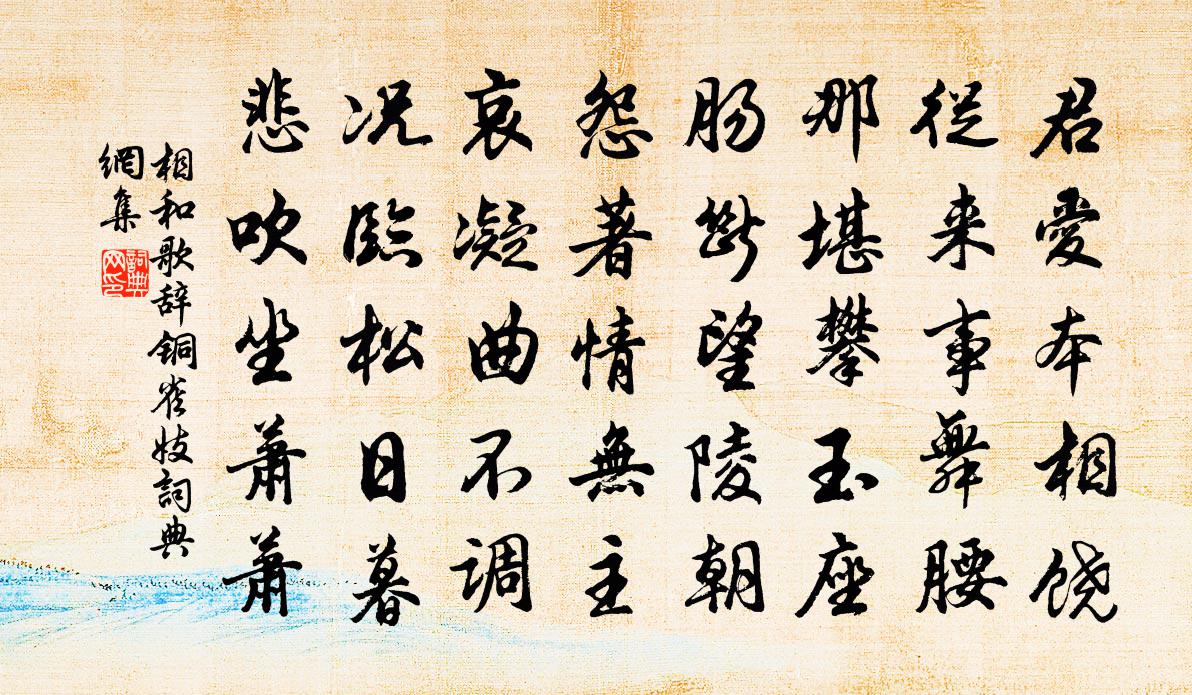 君爱本相饶
從来事舞腰
那堪攀玉座
肠斷望陵朝
怨著情無主
哀凝曲不调
况臨松日暮
悲吹坐萧萧
相和歌辞铜雀妓詞典
網集
詞典
网印